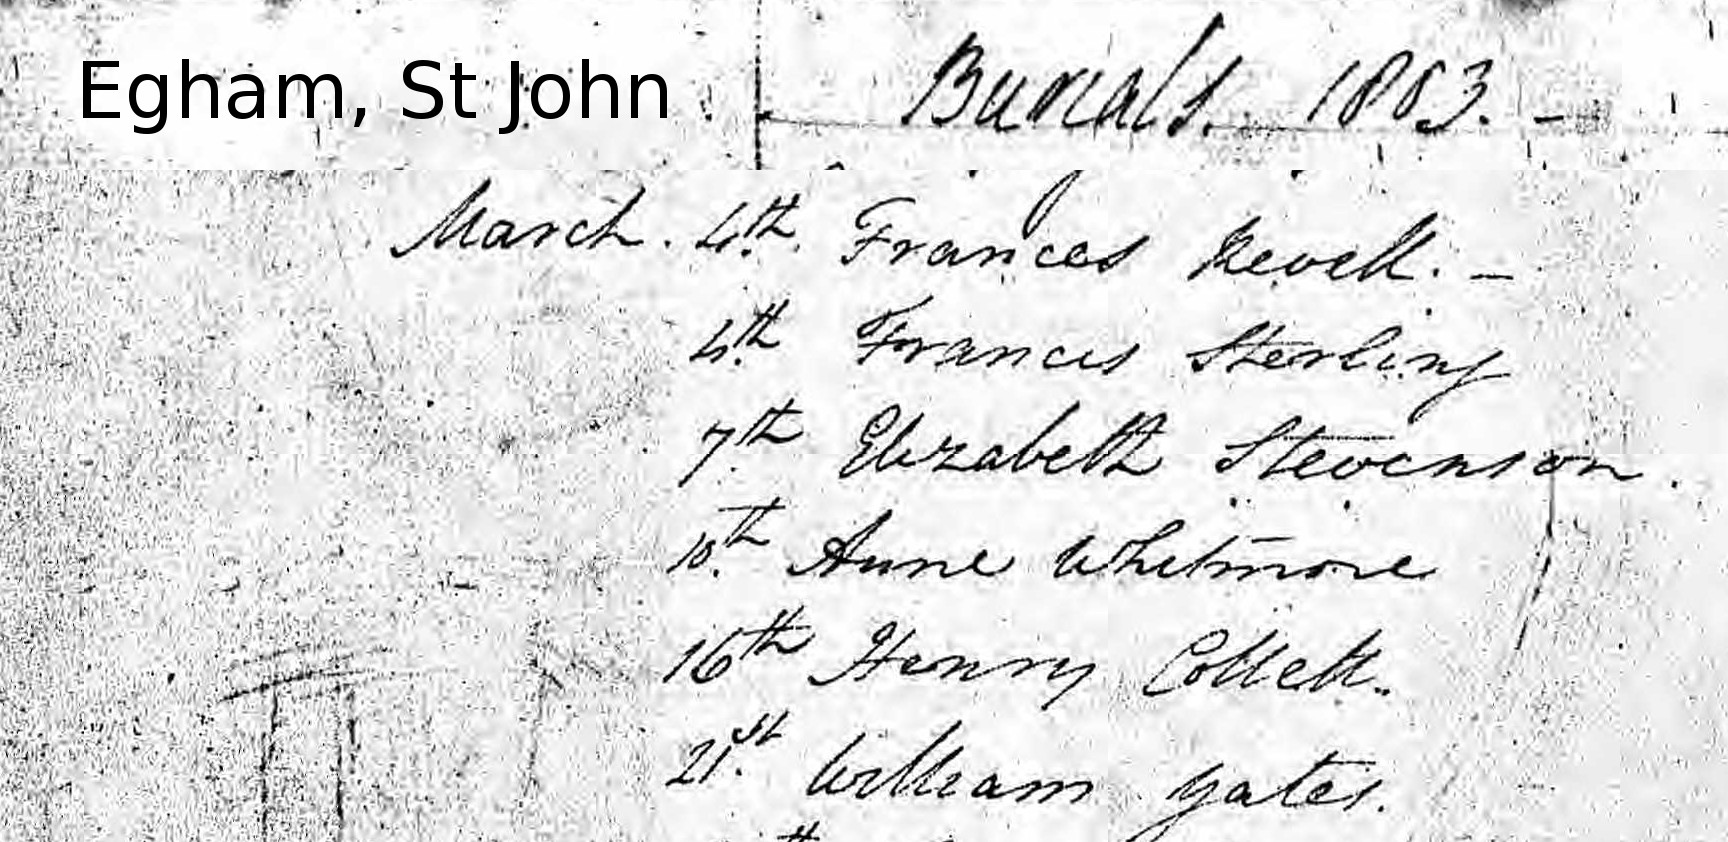 Egham, St John
Burials. 1803. -
March. 4th. Frances Revell. -
4th. Francis Sterling
7th. Elizabeth Stevenson.
10th. Anne Whitmore
16th Henry Collett.
21st. William Yates.